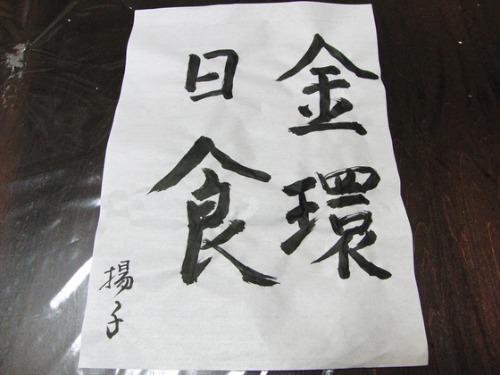 金環
日食
揚子